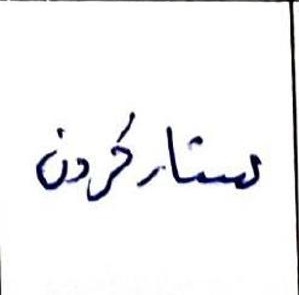 ستار کردن